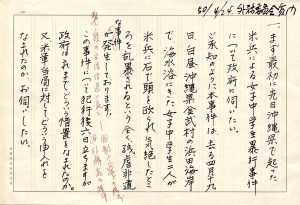 50/4/24. 外務委員会質問
一、まず最初に先日沖縄県で起った
米兵による女子中学生暴行事件
について政府に伺いたい。
ご承知のように本事件は、去る四月十九
日白昼沖縄県金武村の浜田海岸
で、海水浴にきた女子中学生二人が
米兵に石で頭を殴られ気絶したとこ
ろを乱暴されるという全く残虐非道
な事件
が発生しております。
この事件についてすでに犯行後六日立ちますが
政府はこれまでどういう措置をなされたのか。
又米軍当局に対してどういう申入れを
なされたのか、お伺いしたい。